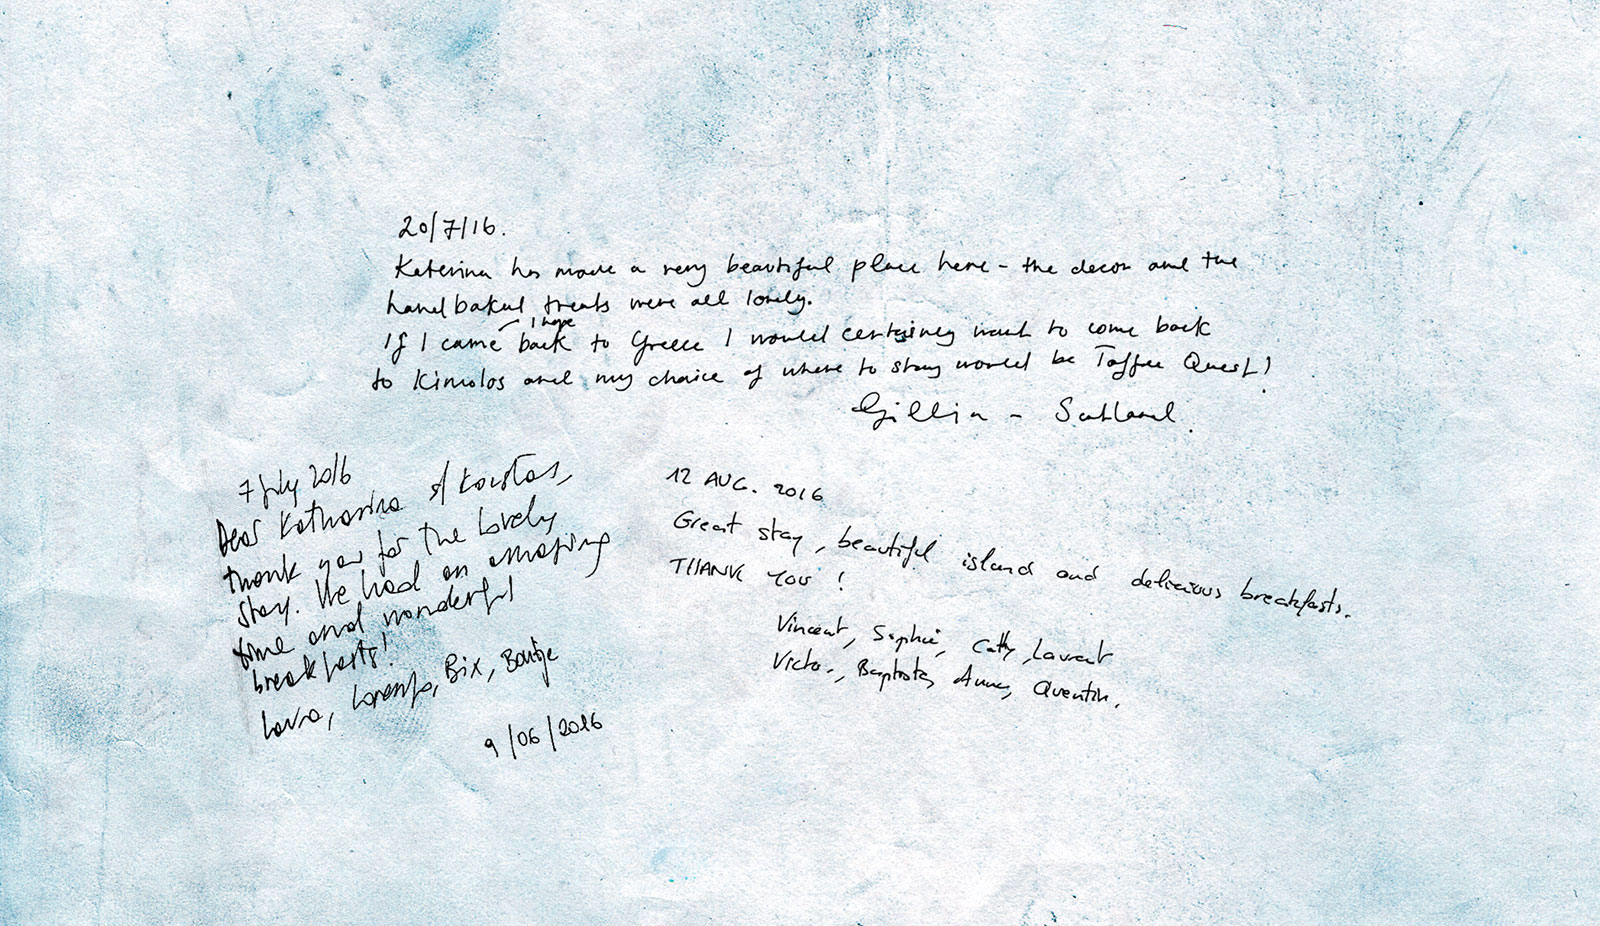 20/7/16.
Katerina has made a very beautiful place here - the decor and the
hand baked treats were all lovely.
I hope
If I came back to Greece I would certainly want to come back
to Kimolos and my choice of where to stay would be Toffee Quest!
Gillian - Scotland.
7 July 2016
Dear Katharina & Kostas,
thank you for the lovely
stay. We had an amazing
time and wonderful
breakfasts!
Laura, Lorenzo, Bix, Bontje
9/06/2016
12 AUG. 2016
Great stay, beautiful island and delicious breakfasts.
THANK YOU !
Vincent, Sophie, Cathy, Laurent
Victor, Baptiste, Anne, Quentin.